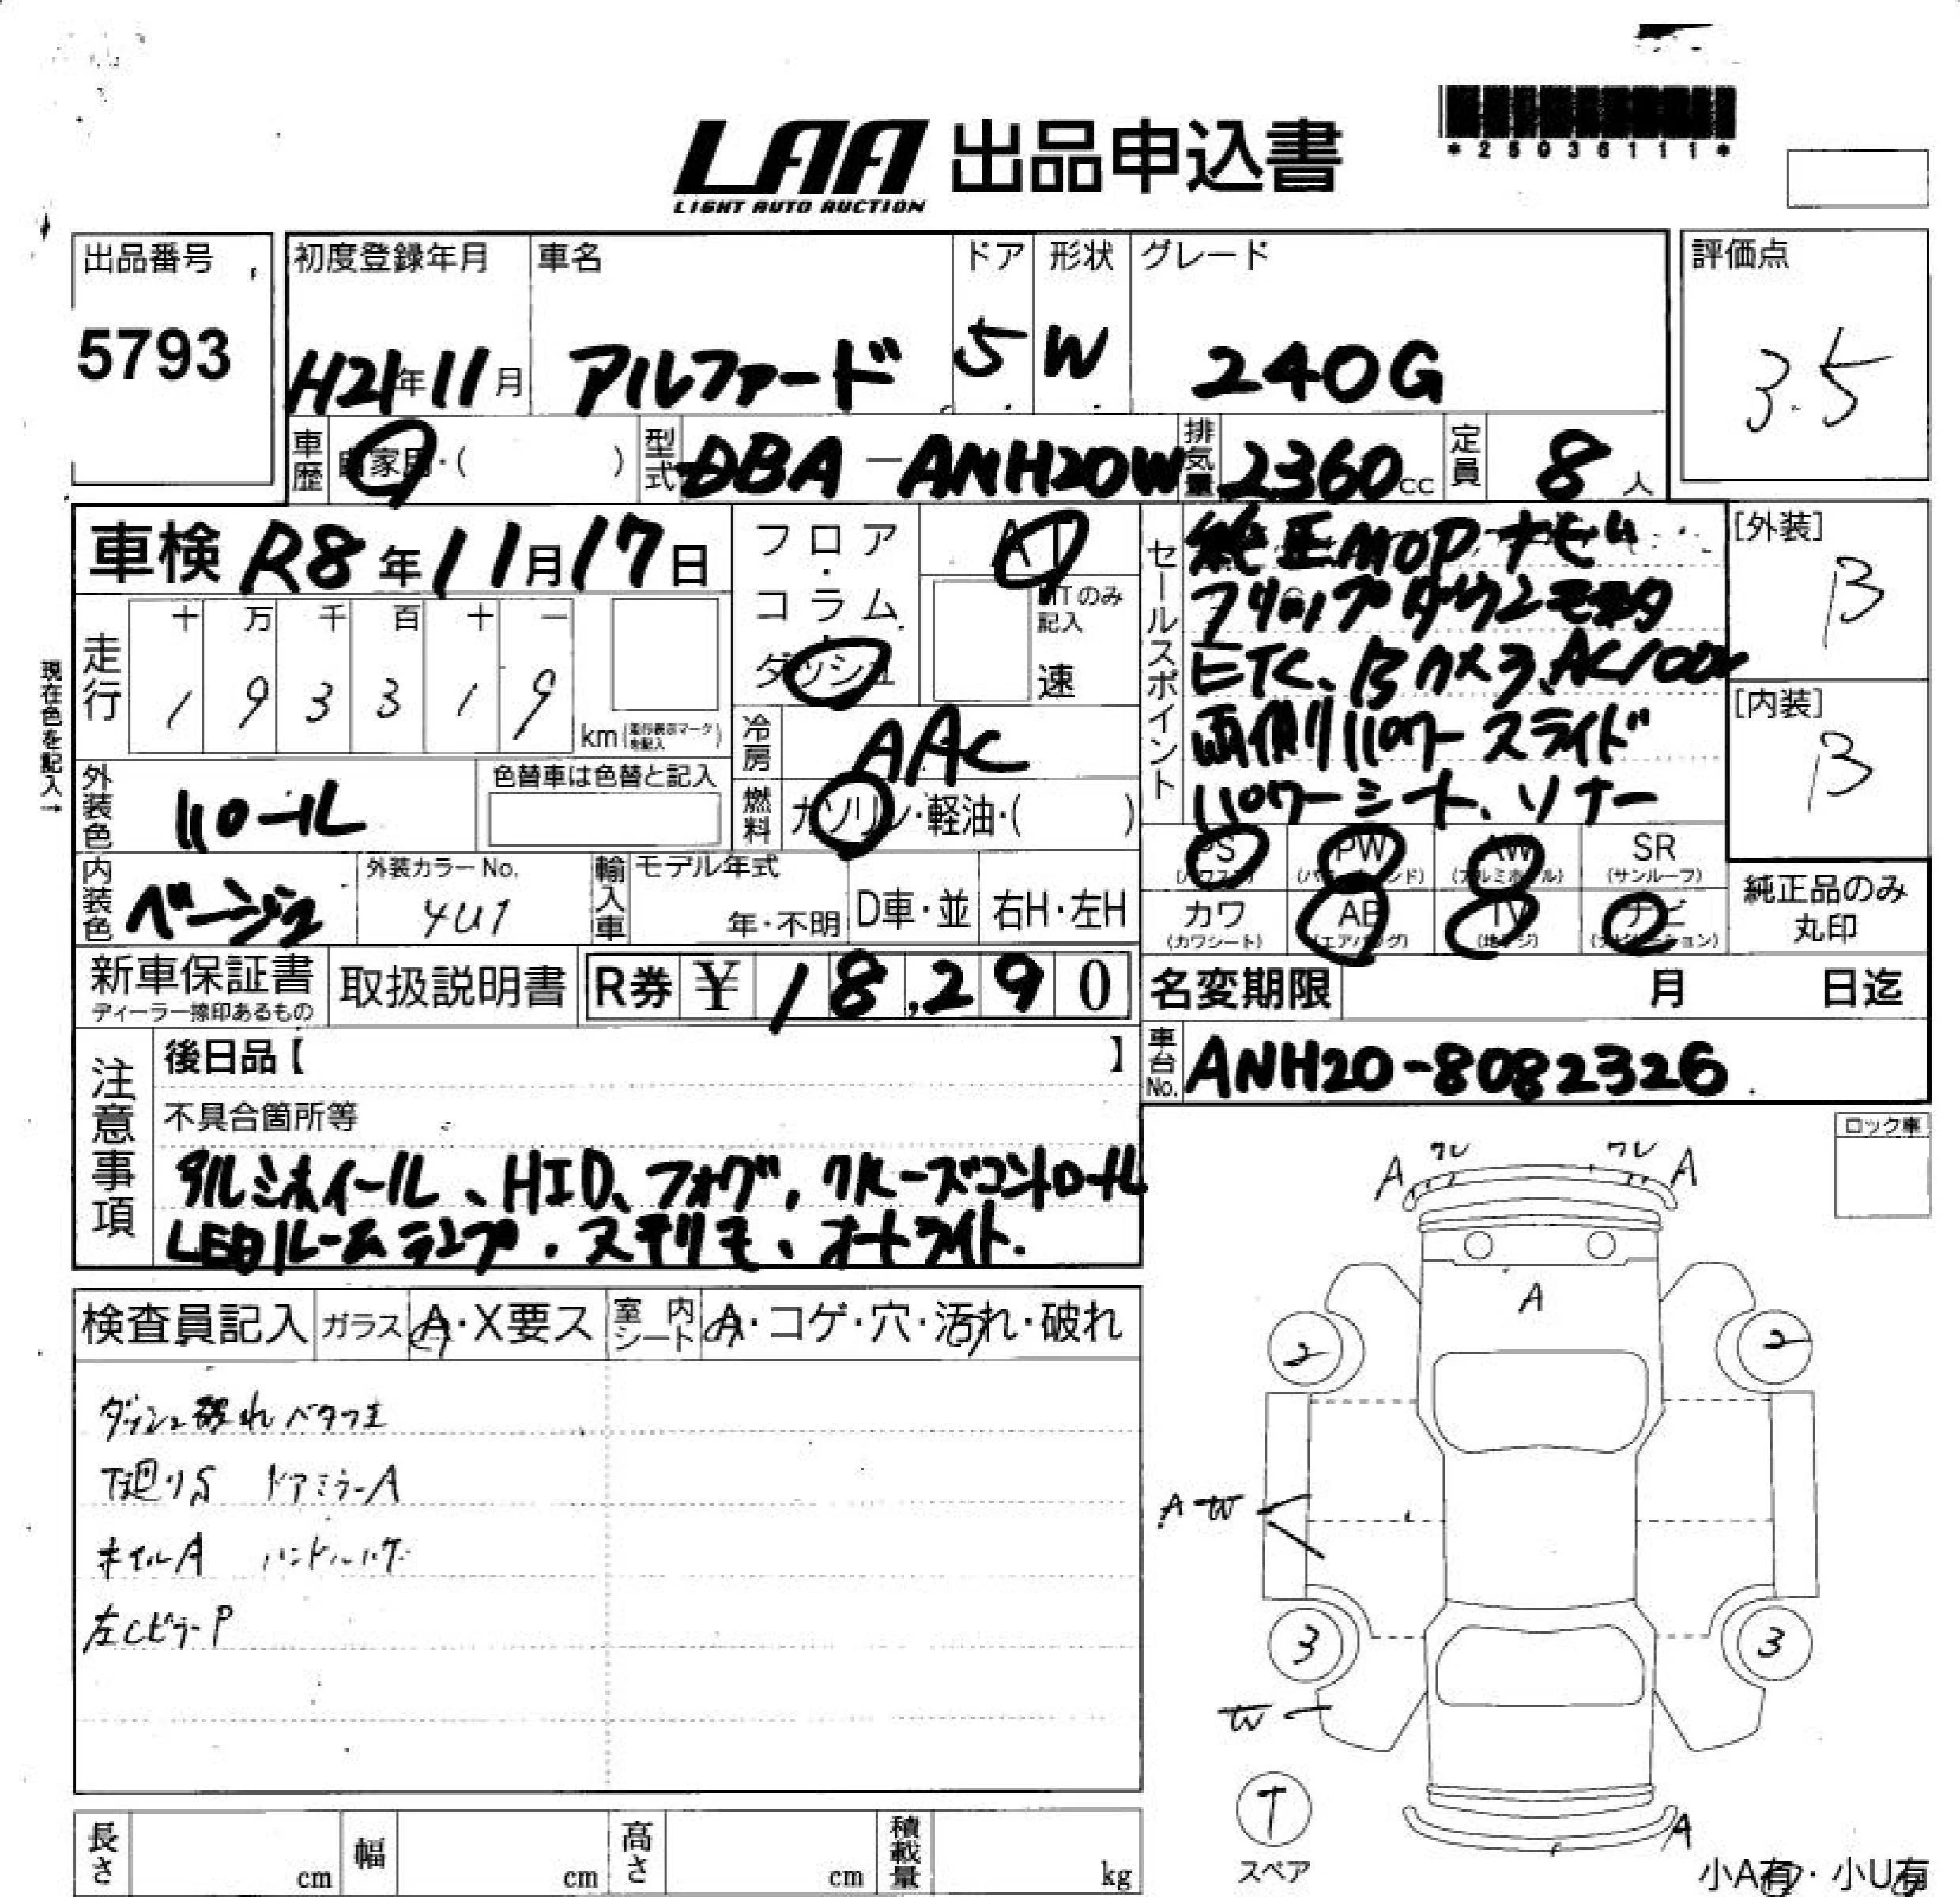 LAA 出品申込書
LIGHT AUTO AUCTION
*25036111*
出品番号
5793
初度登録年月
H21年11月
車名
アルファード
ドア
5
形状
W
グレード
240G
評価点
3.5
車歴 自家用・( )
型式 DBA-ANH20W
排気量 2360cc
定員 8人
車検 R8年11月17日
フロア・コラム・ダッシュ
AT
MTのみ記入
速
走行
十 万 千 百 十 一
1 9 3 3 1 9
km(走行表示マークを記入)
現在色を記入→
冷房 AAC
外装色 パール
色替車は色替と記入
燃料 ガソリン・軽油・( )
内装色 ベージュ
外装カラーNo.
4U1
輸入車
モデル年式
年・不明
D車・並
右H・左H
セールスポイント
純正MOPナビム
フリップダウンモニタ
ETC、Bカメラ、AC100V
両側パワースライド
パワーシート、ソナー
[外装]
B
[内装]
B
PS
(パワステ)
PW
(パワーウィンド)
AW
(アルミホイール)
SR
(サンルーフ)
カワ
(カワシート)
AB
(エアバッグ)
TV
(地デジ)
ナビ
(ナビゲーション)
純正品のみ
丸印
新車保証書
ディーラー捺印あるもの
取扱説明書
R券 ¥ 18,290
名変期限 月 日迄
車台No. ANH20-8082326
注意事項
後日品【 】
不具合箇所等
アルミホイール、HID、フォグ、クルーズコントロール
LEDルームランプ、ステリモ、オートライト.
ロック車
検査員記入
ガラス A・X要ス
室内シート A・コゲ・穴・汚れ・破れ
ダッシュ破れベタつき
下廻りS ドアミラーA
ホイルA ハンドルハゲ
左CピラーP
A ワレ ワレ A
A
2 2
A W
3 3
W
T
スペア
A
長さ cm
幅 cm
高さ cm
積載量 kg
小A有・小U有